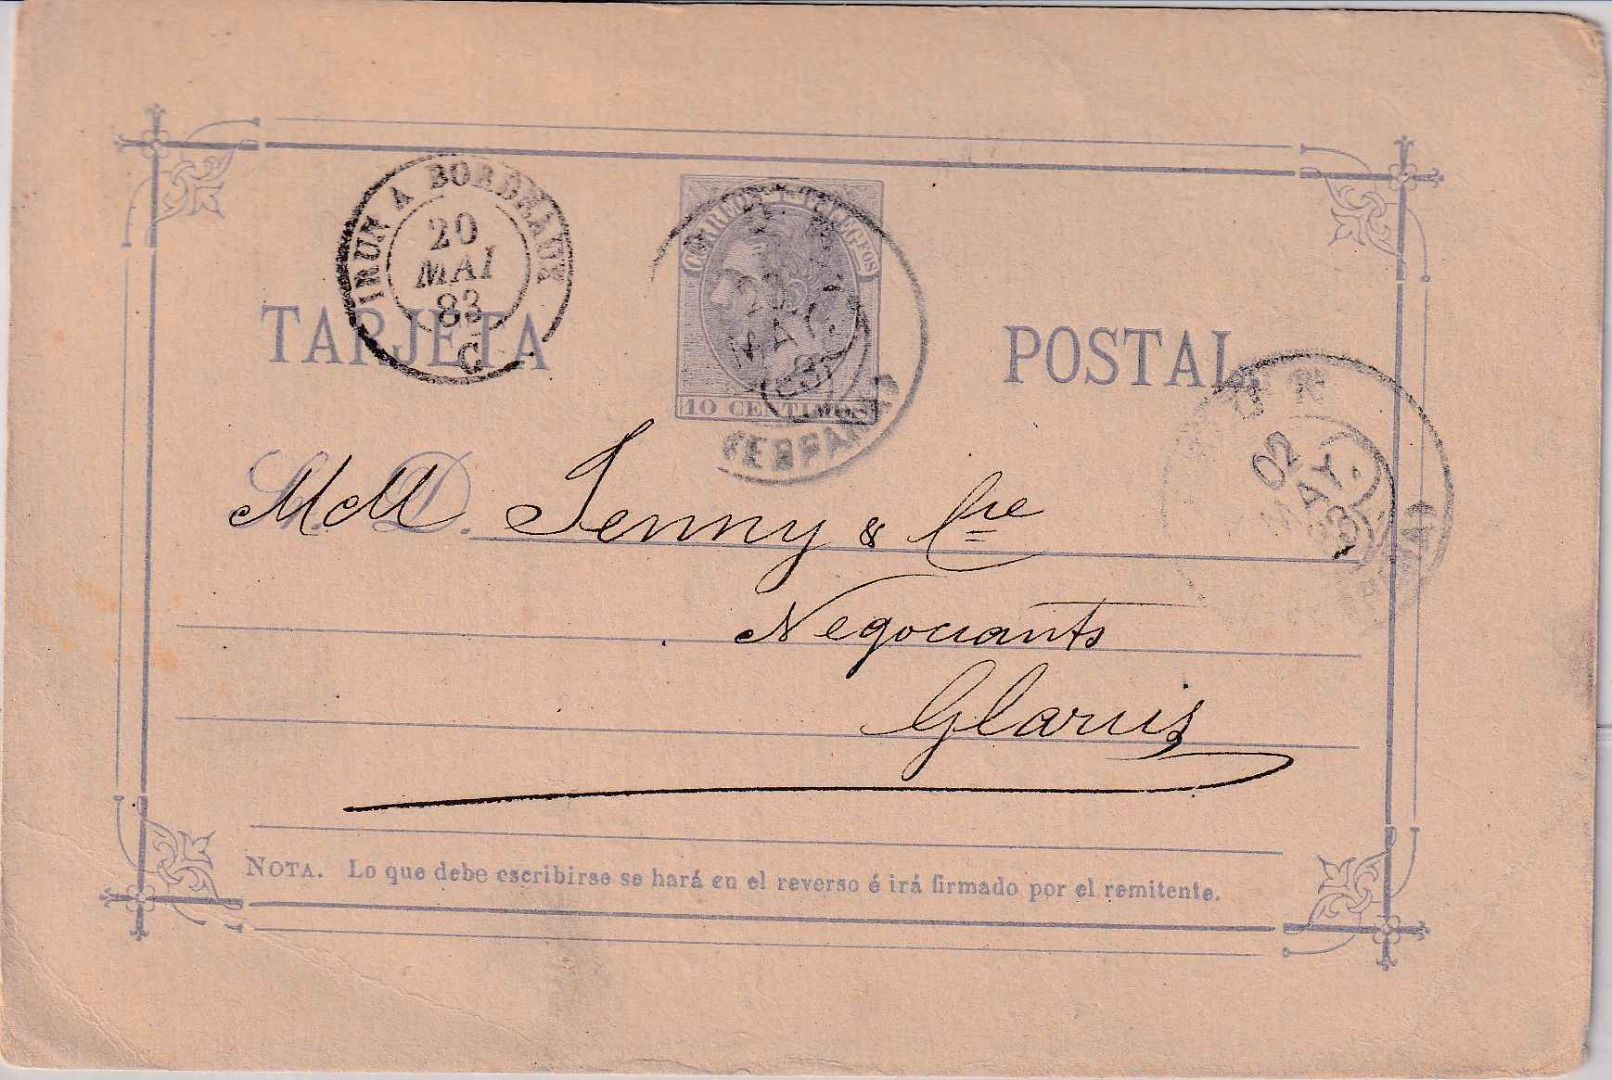 IRUN A BORDEAUX
20
MAI
83
C
CORREOS Y TELEGFOS
20
MAY
83
10 CENTIMOS
(ESPAÑA)
TARJETA POSTAL
02
MAY.
83
S. D.
MM Jenny & Cie
Negociants
Glarus
NOTA. Lo que debe escribirse se hará en el reverso é irá firmado por el remitente.